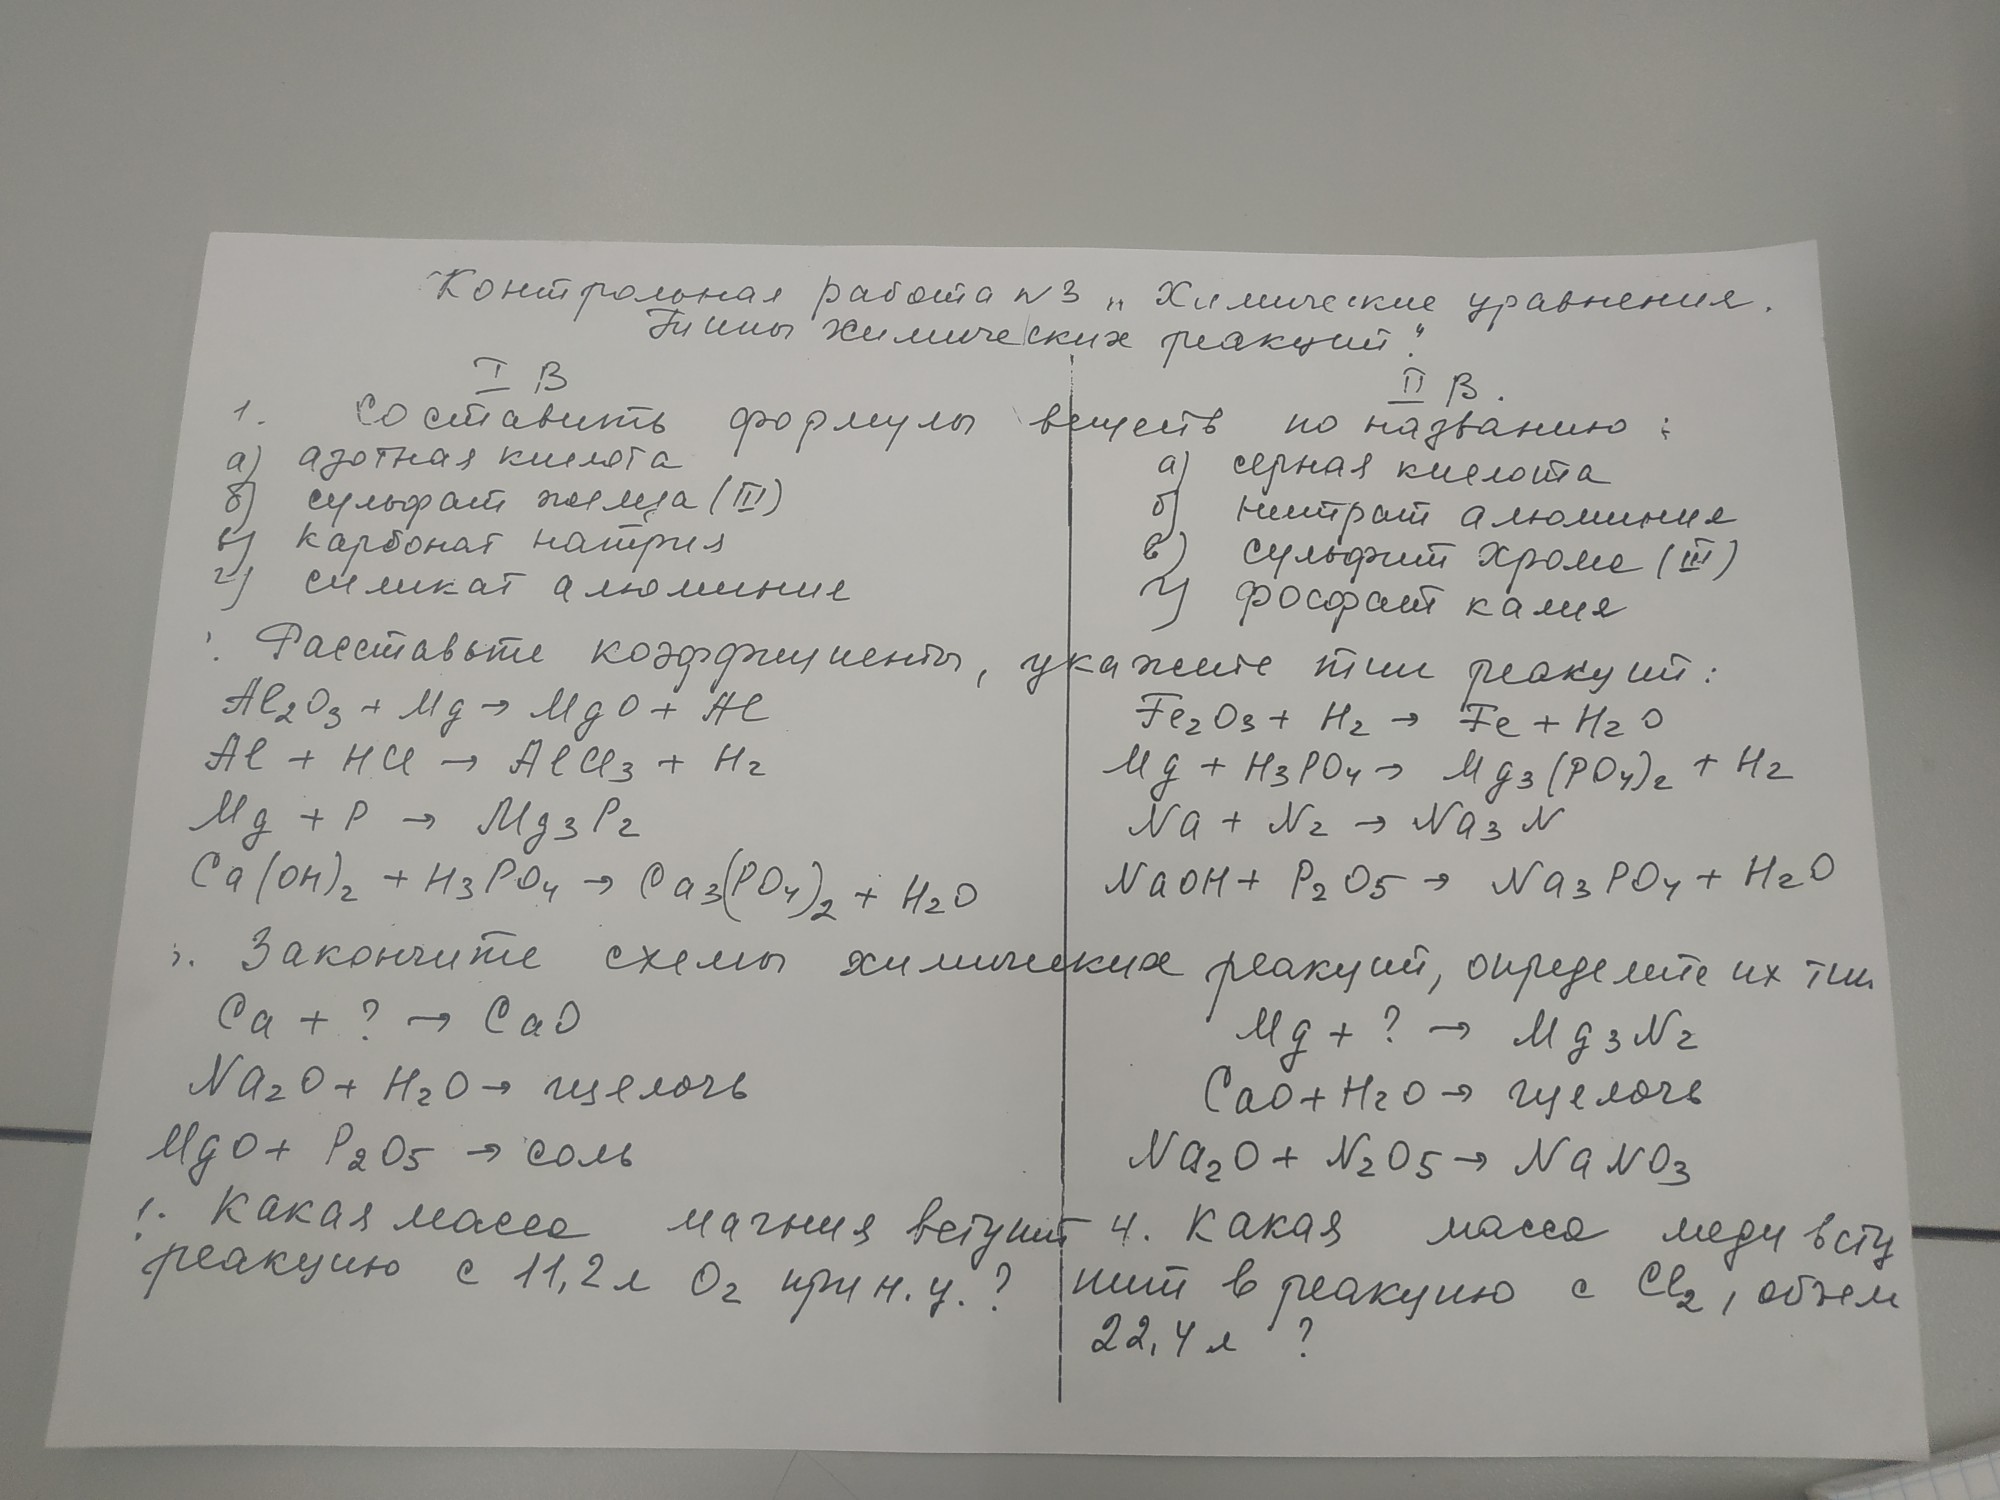 Контрольная работа №3 „Химические уравнения.
Типы химических реакций."
I В
II В.
1. Составить формулы веществ по названию:
а) азотная кислота
б) сульфат железа (III)
в) карбонат натрия
г) силикат алюминия
а) серная кислота
б) нитрат алюминия
в) сульфит хрома (III)
г) фосфат калия
. Расставьте коэффициенты, укажите тип реакций:
Al2O3 + Mg → MgO + Al
Al + HCl → AlCl3 + H2
Mg + P → Mg3P2
Ca(OH)2 + H3PO4 → Ca3(PO4)2 + H2O
Fe2O3 + H2 → Fe + H2O
Mg + H3PO4 → Mg3(PO4)2 + H2
Na + N2 → Na3N
NaOH + P2O5 → Na3PO4 + H2O
. Закончите схемы химических реакций, определите их тип
Ca + ? → CaO
Na2O + H2O → щелочь
MgO + P2O5 → соль
Mg + ? → Mg3N2
CaO + H2O → щелочь
Na2O + N2O5 → NaNO3
. Какая масса магния вступит
реакцию с 11,2 л O2 при н.у.?
4. Какая масса меди всту
пит в реакцию с Cl2, объем
22,4 л ?